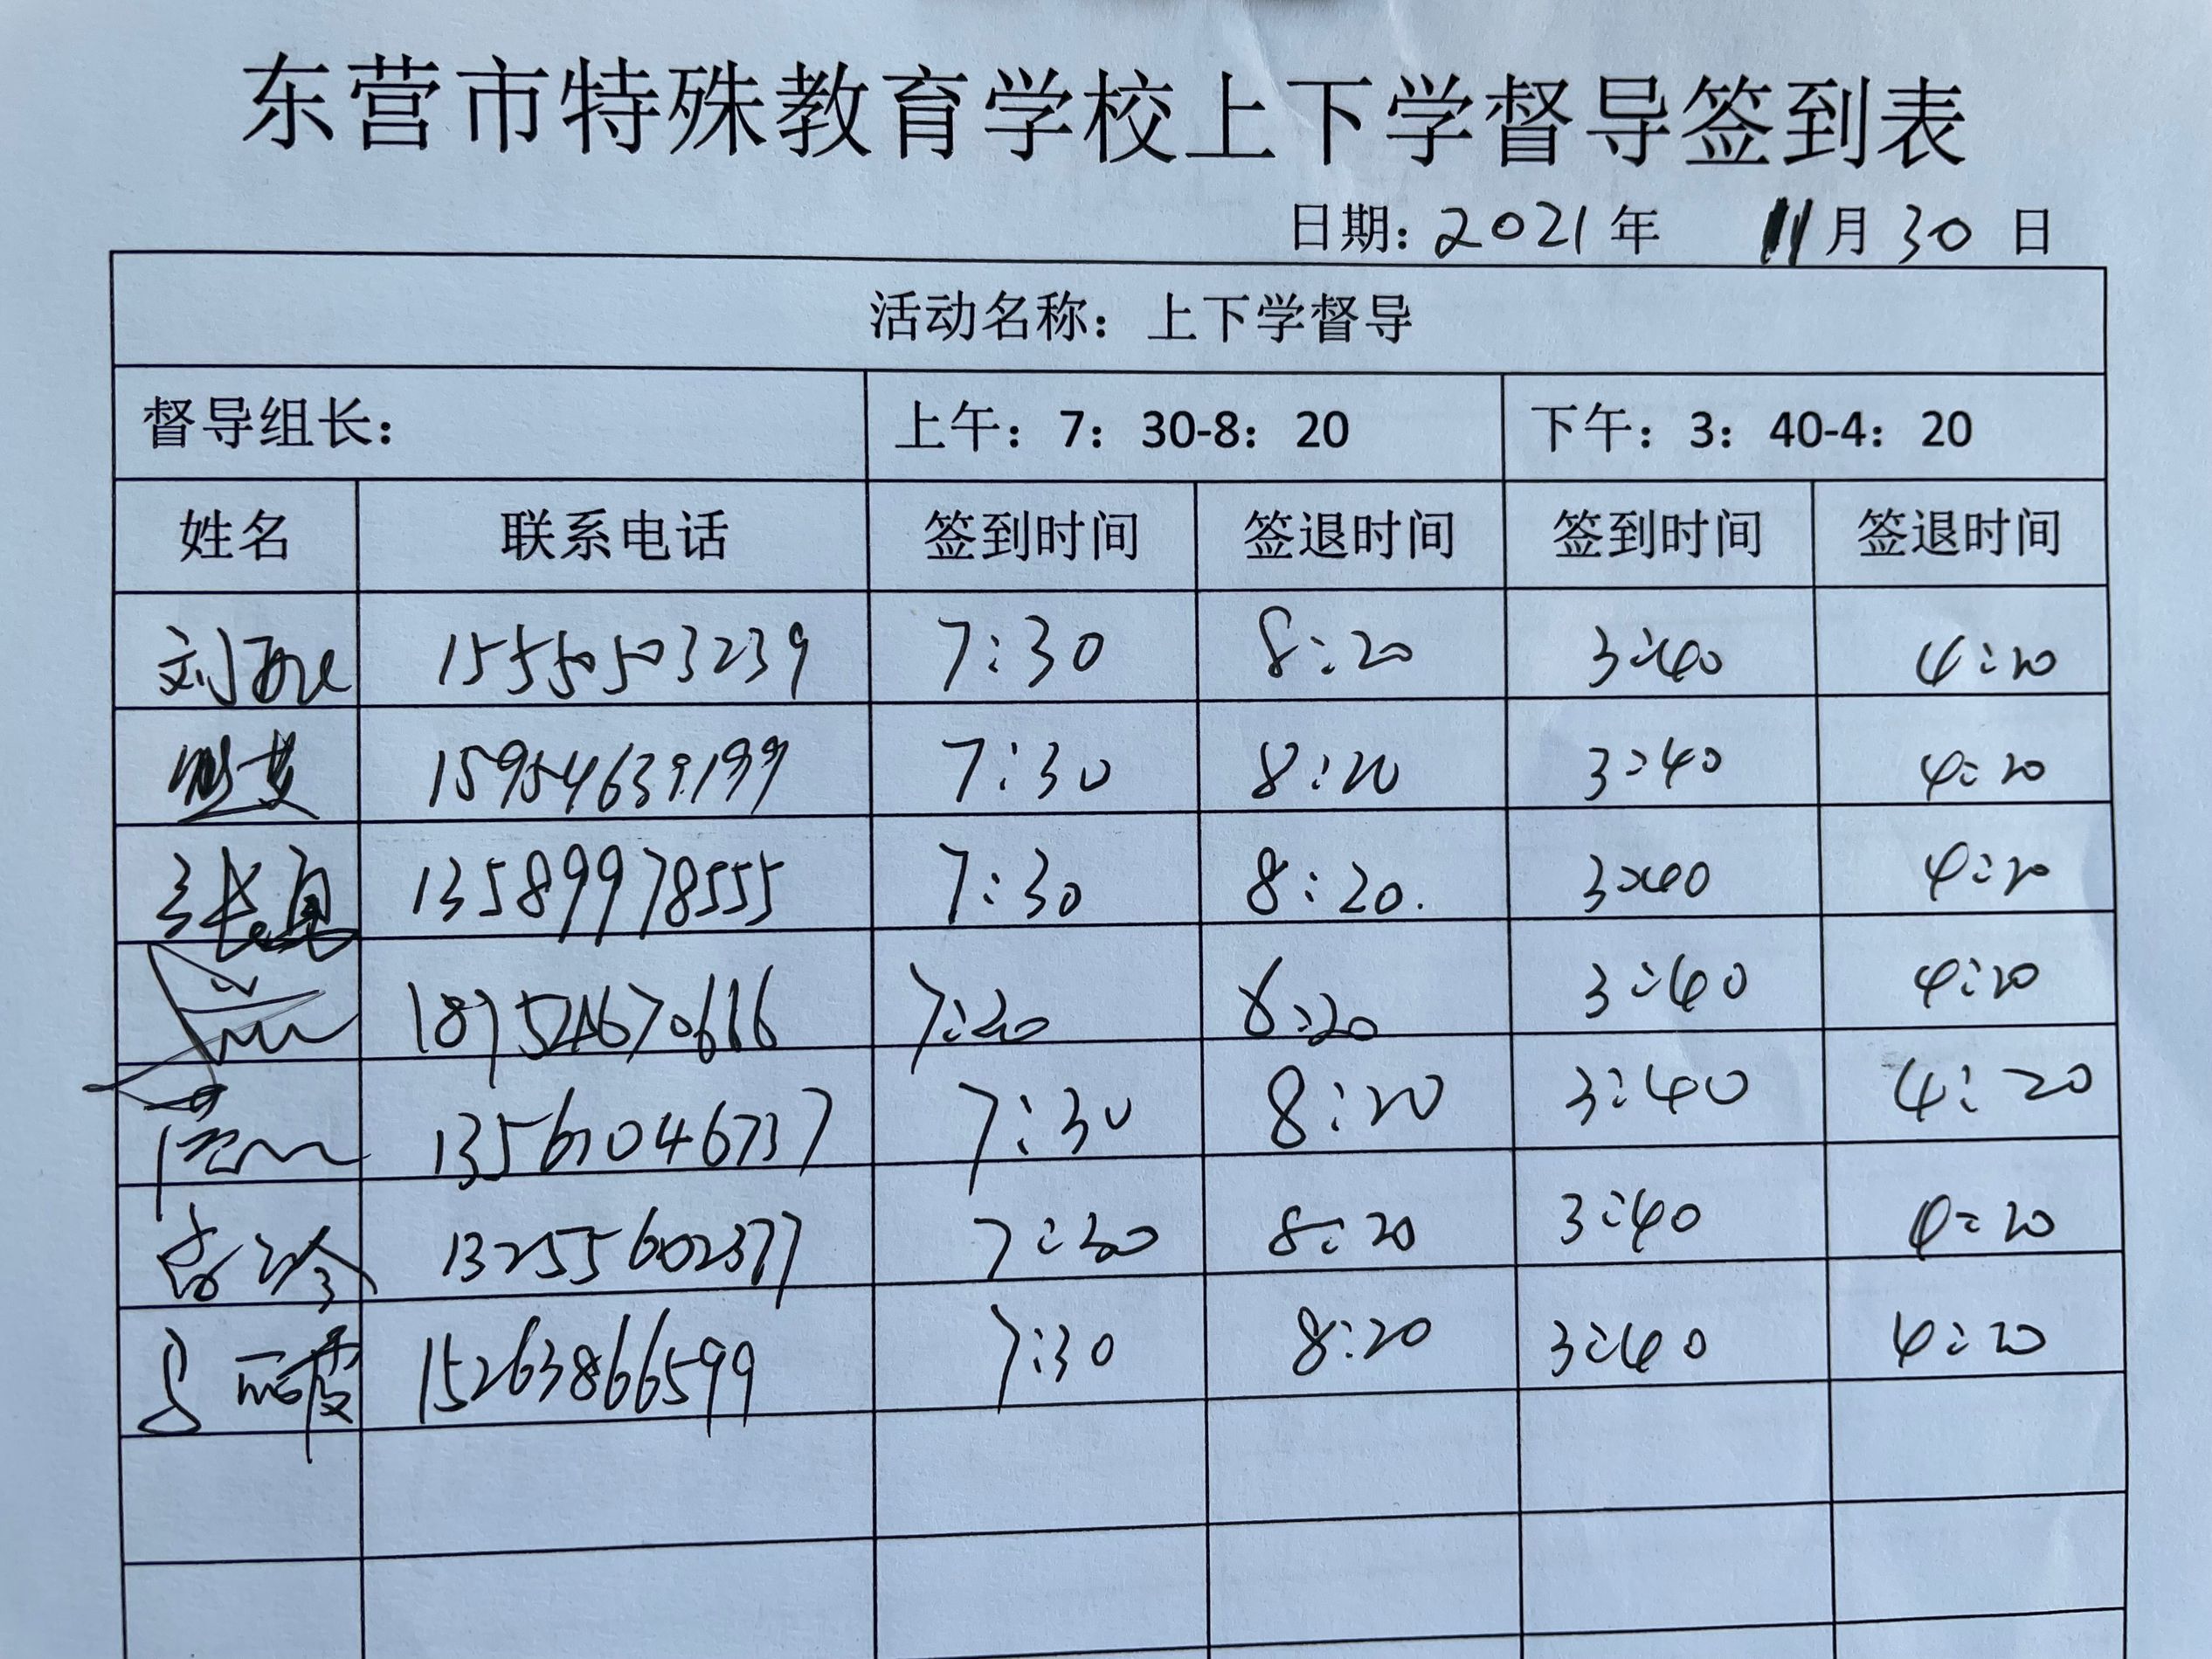 东营市特殊教育学校上下学督导签到表
日期：2021年 11月30日
活动名称：上下学督导
督导组长： 上午：7：30-8：20 下午：3：40-4：20
姓名 联系电话 签到时间 签退时间 签到时间 签退时间
刘 15550503239 7:30 8:20 3:40 4:20
15954639199 7:30 8:20 3:40 4:20
张 13589978555 7:30 8:20. 3:40 4:20
18954670616 7:20 8:20 3:40 4:20
7:30 8:20 3:40 4:20
13255602377 7:30 8:20 3:40 4:20
吕丽霞 15263866599 7:30 8:20 3:40 4:20